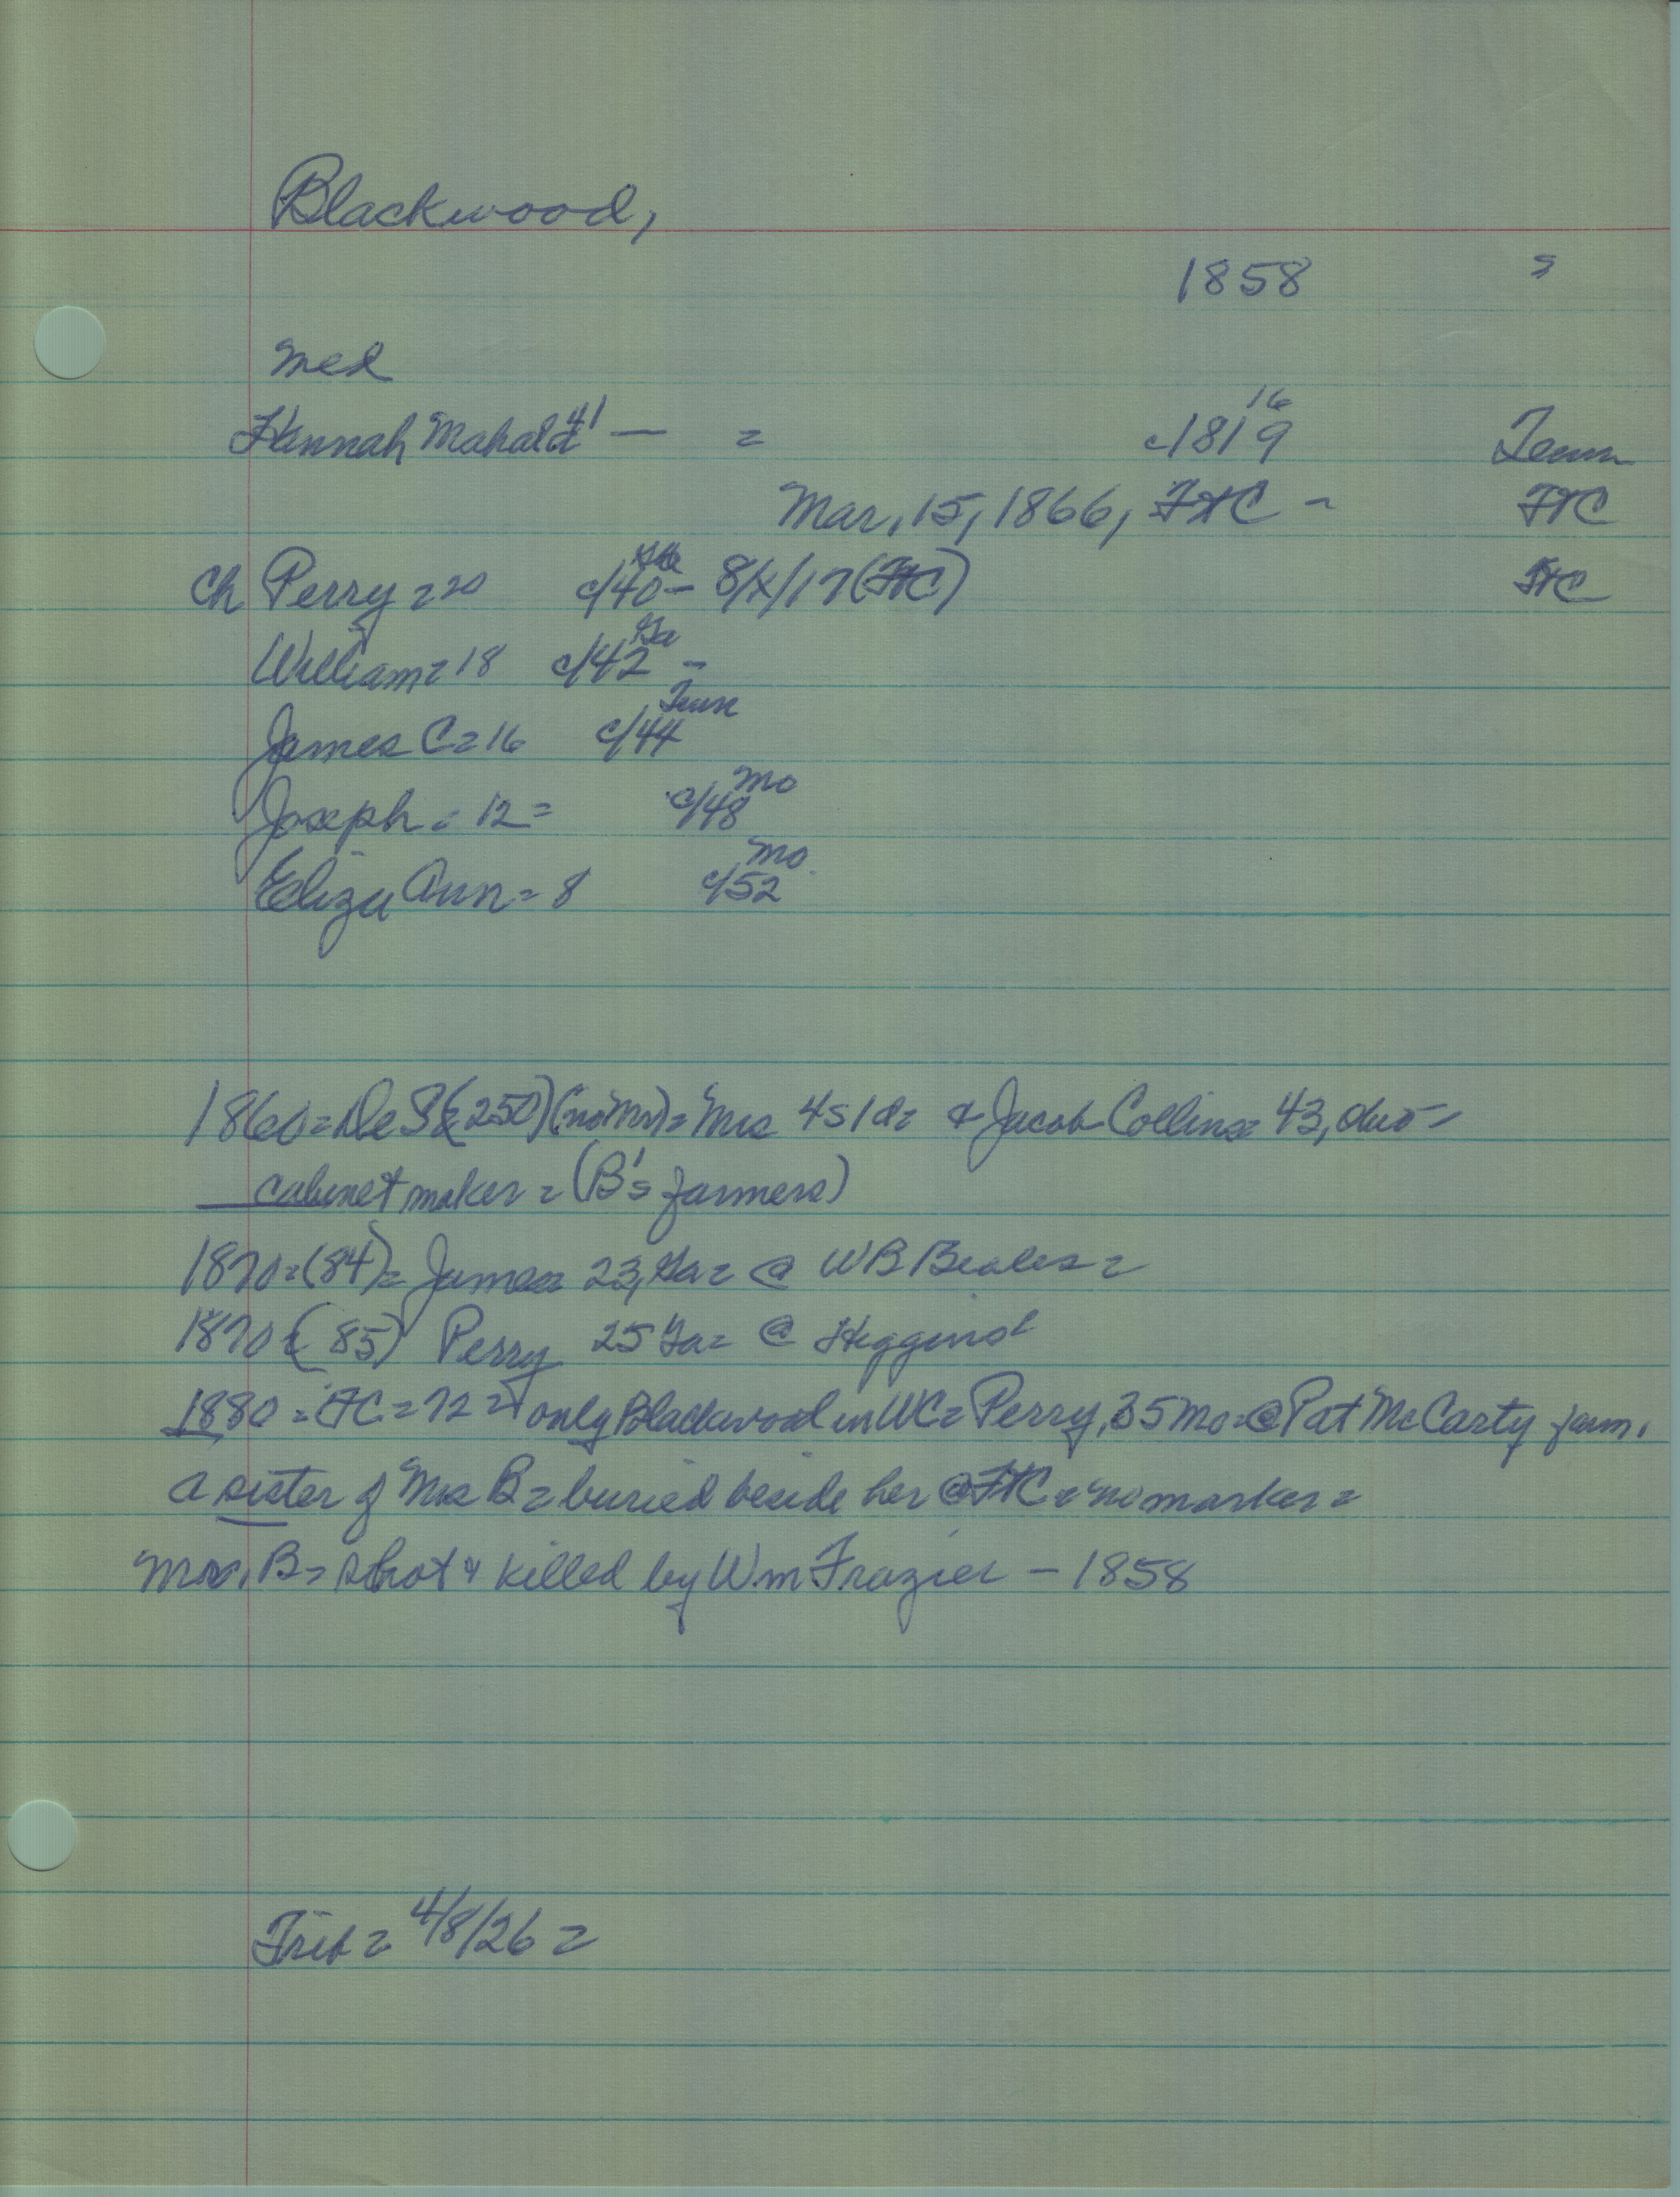 Blackwood,
1858 =
med
16
Hannah Mahala 41 — = c/1819 Tenn
Mar, 15, 1866, FtC – FtC
Ch Perry = 20 c/40 – 8/x/17 (FtC) FtC
Ga
William = 18 c/42 –
Tenn
James C = 16 c/44
Mo
Joseph = 12 = c/48
Mo
Eliza Ann = 8 c/52
1860 = De S (250) (no Mr) = Mrs 4s 1d = & Jacob Collins = 43,
cabinet maker = (B's farmers)
1870 = (84) = James 23, Ga = @ WB Beales =
1870 = (85) Perry 25 Ga = @ Higgins
1880 = FC = 72 = only Blackwood in WC = Perry, 35 Mo = @ Pat McCarty farm,
a sister of Mrs B = buried beside her @ FtC = no marker =
B = shot & killed by Wm Frazier – 1858
Trib = 4/8/26 =